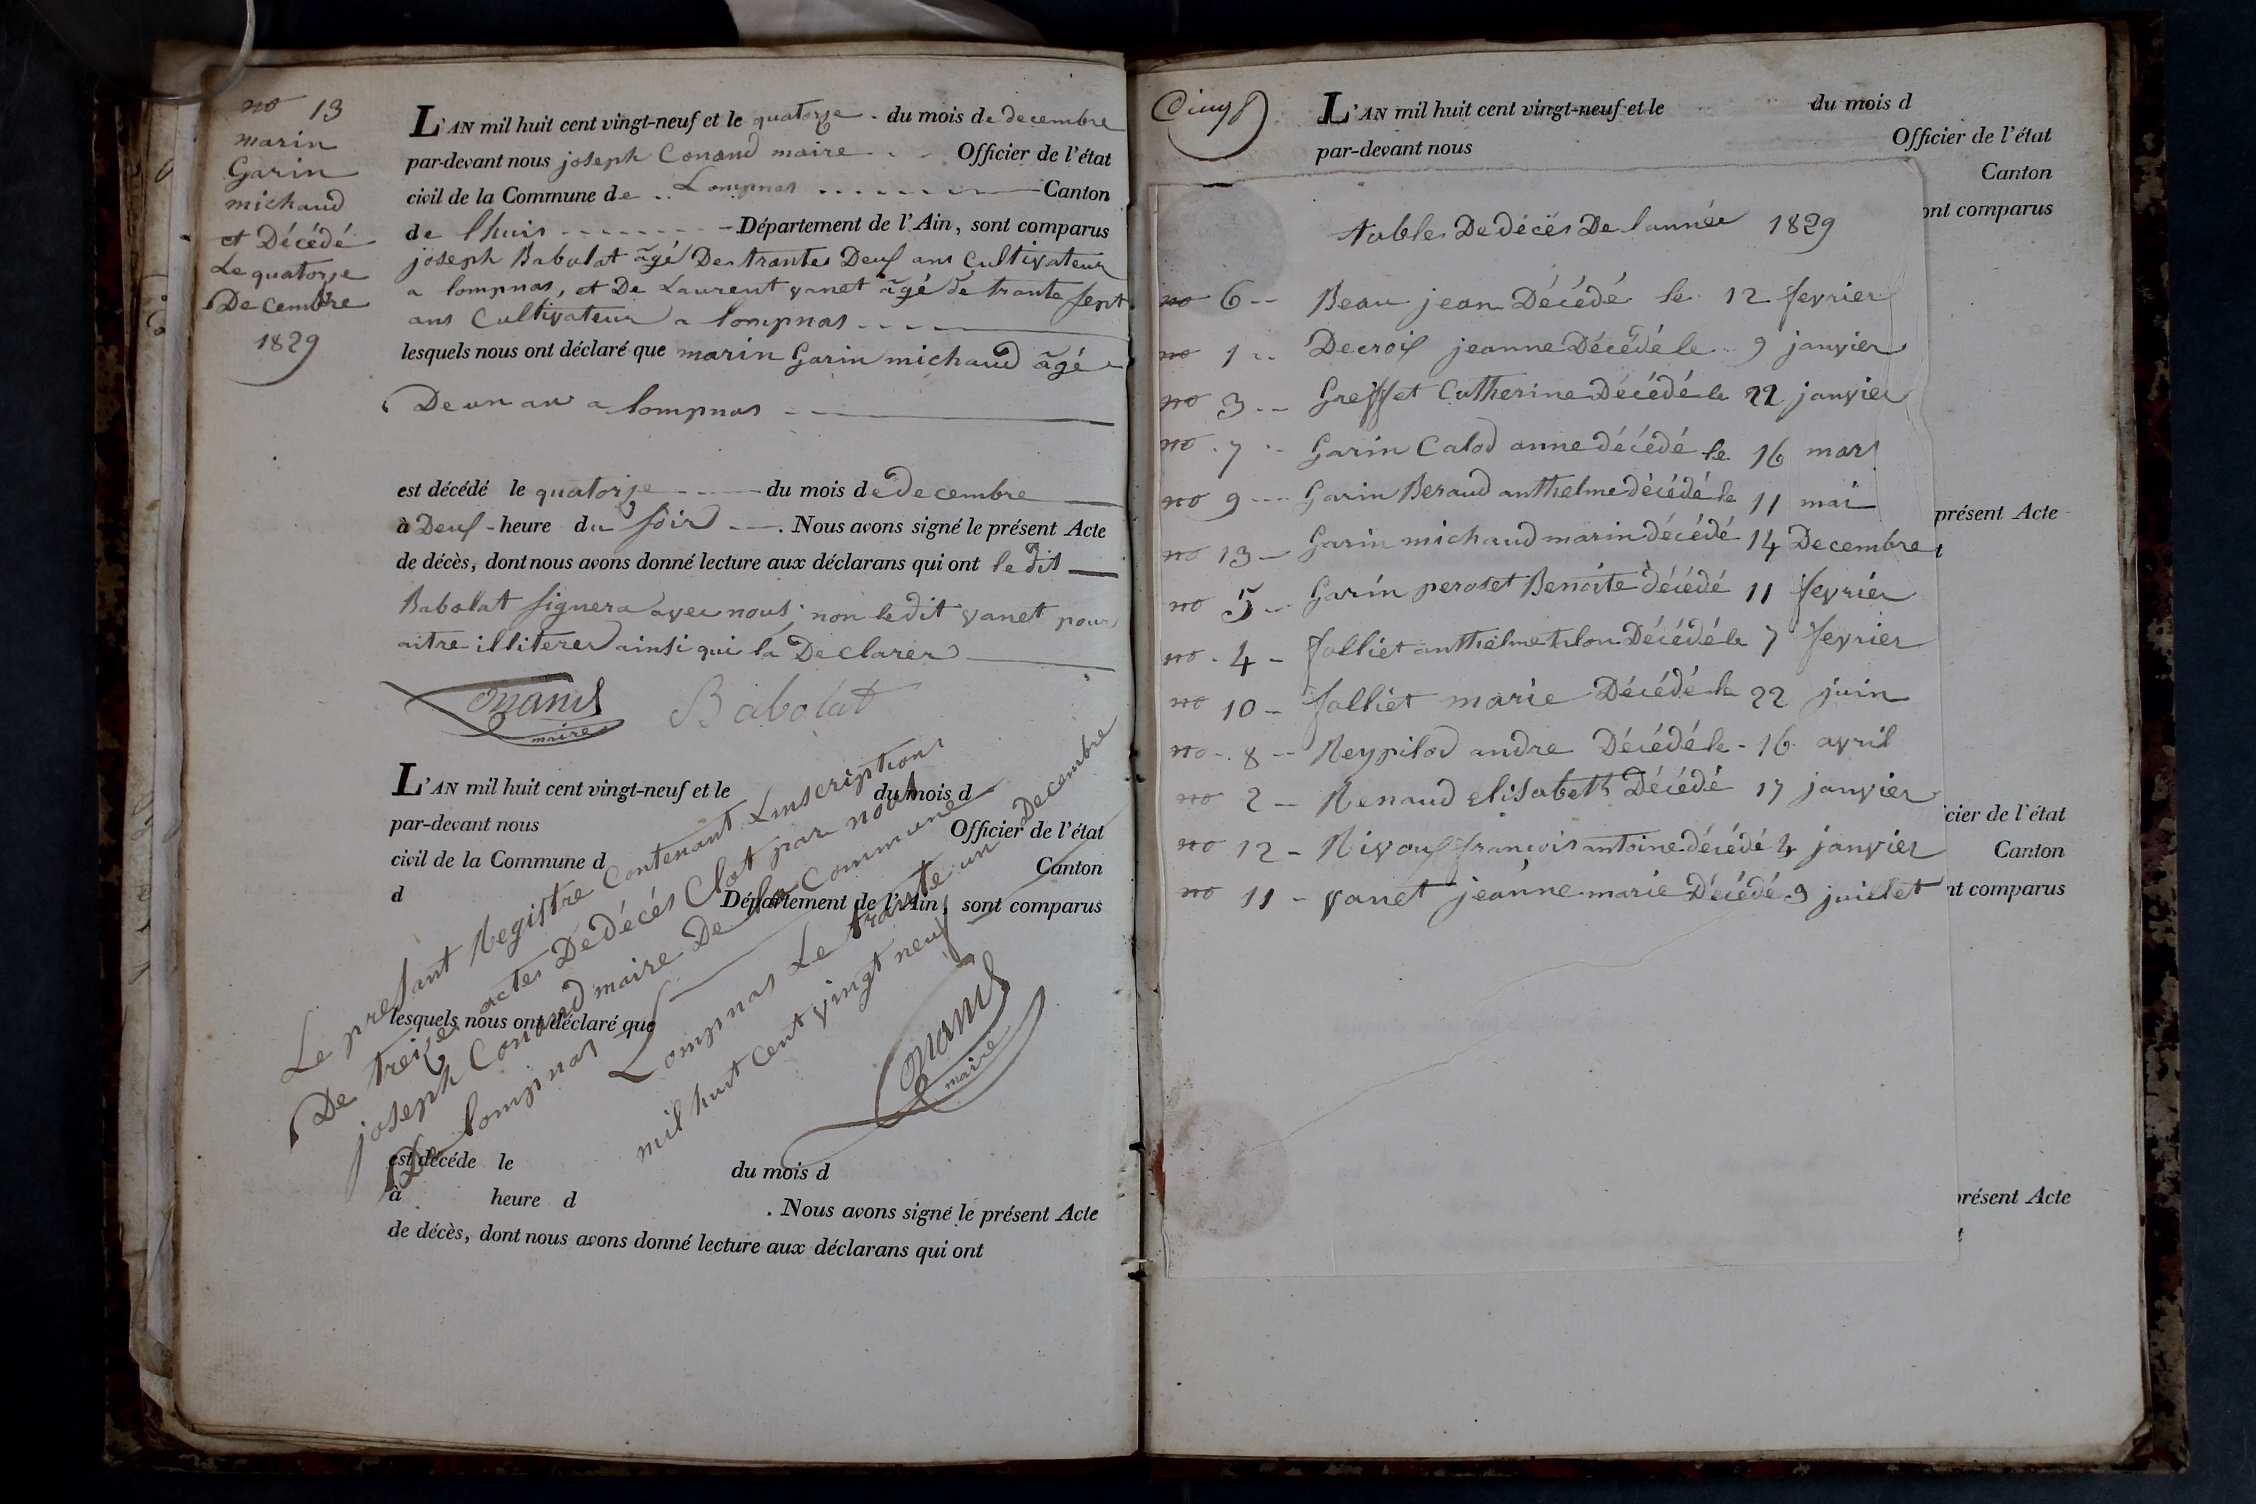 no 13
marin
Garin
michaud
et Décédé
Le quatorze
Decembre
1829
L'AN mil huit cent vingt-neuf et le quatorze - du mois de decembre
par-devant nous joseph Conand maire - - Officier de l'état
civil de la Commune de .. Lompnas ....... Canton
de lhuis - - - - - - - - Département de l'Ain, sont comparus
joseph Babolat âgé De trante Deux ans Cultivateur
a lompnas, et De Laurent vanet âgé de trante sept
ans Cultivateur a lompnas - - - -
lesquels nous ont déclaré que marin Garin michaud âgé
De un an a lompnas - -
est décédé le quatorze - - - - du mois de decembre
à Deux - heure du soir - - . Nous avons signé le présent Acte
de décès, dont nous avons donné lecture aux déclarans qui ont le dit
Babolat signera avec nous, non ledit vanet pour
aitre illiterer ainsi qui la Declarer
Conand
maire
Babolat
L'AN mil huit cent vingt-neuf et le du mois d
par-devant nous Officier de l'état
civil de la Commune d Canton
d Département de l'Ain, sont comparus
lesquels nous ont déclaré que
est décéde le du mois d
à heure d . Nous avons signé le présent Acte
de décès, dont nous avons donné lecture aux déclarans qui ont
Le present Registre Contenant Linscription
De treize actes De décés Clot par nous
joseph Conand maire De la Commune
De lompnas
Lompnas Le trante un Decembre
mil huit cent vingt neuf
Conand
maire
L'AN mil huit cent vingt-neuf et le du mois d
par-devant nous Officier de l'état
Canton
ont comparus
table De décès De lannée 1829
no 6 -- Beau jean Décédé le 12 fevrier
no 1 -- Decroix jeanne Décédé le - 9 janvier
no 3 -- Greffet Catherine Décédé le 22 janvier
no . 7 -- Garin Calod anne décédé le 16 mars
no 9 --- Garin Beraud anthelme décédé le 11 mai
no 13 - Garin michaud marin décédé 14 Decembre
no 5 - Garin peroset Benoite décédé 11 fevrier
no . 4 - Jolliet anthelme Décédé le 7 fevrier
no 10 - Jolliet marie Décédé le 22 juin
no - . 8 -- Reypilod andre Décédé le - 16 avril
no 2 - Renaud elisabeth Décédé 17 janvier
no 12 - Rivoux françois antoine décédé 4 janvier
no 11 - vanet jeanne marie Décédé 9 juillet
présent Acte
cier de l'état
Canton
nt comparus
présent Acte
t